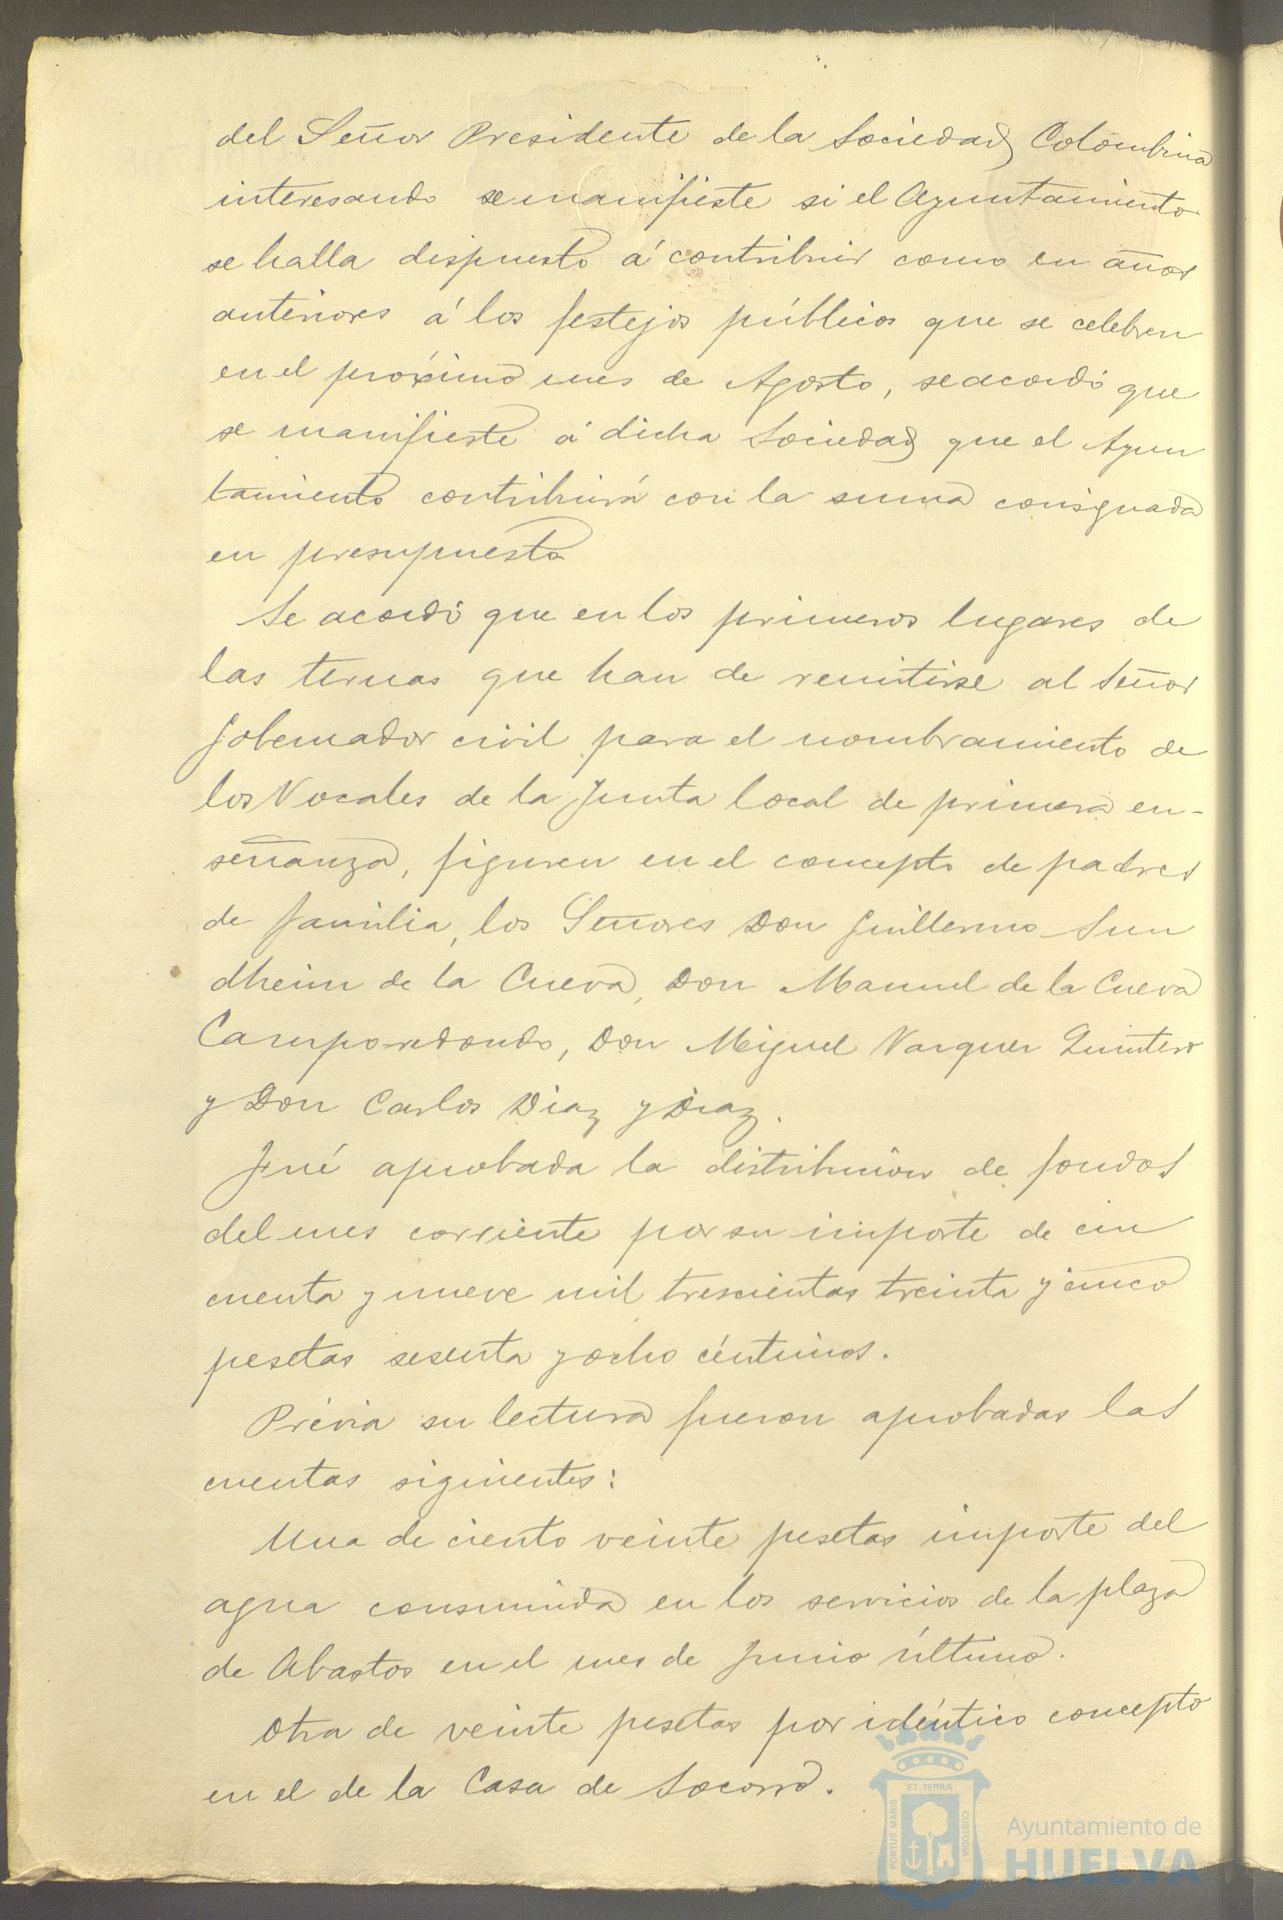 del Señor Presidente de la Sociedad Colombina
interesando se manifieste si el Ayuntamiento
se halla dispuesto á contribuir como en años
anteriores á los festejos públicos que se celebren
en el próximo mes de Agosto, se acordó que
se manifieste á dicha Sociedad que el Ayun
tamiento contribuirá con la suma consignada
en presupuesto
Se acordó que en los primeros lugares de
las ternas que han de remitirse al Señor
Gobernador civil para el nombramiento de
los Vocales de la Junta local de primera en-
señanza, figuren en el concepto de padres
de familia, los Señores Don Guillermo Sun
dheim de la Cueva, Don Manuel de la Cueva
Camporredondo, Don Miguel Vazquez Quintero
y Don Carlos Diaz y Diaz.
Fué aprobada la distribucion de fondos
del mes corriente por su importe de cin
cuenta y nueve mil trescientas treinta y cinco
pesetas sesenta y ocho céntimos.
Prévia su lectura fueron aprobadas las
cuentas siguientes:
Una de ciento veinte pesetas importe del
agua consumida en los servicios de la plaza
de Abastos en el mes de Junio último.
Otra de veinte pesetas por idéntico concepto
en el de la Casa de Socorro.
PORTUS MARIS ET TERRÆ CUSTODIA
Ayuntamiento de
HUELVA